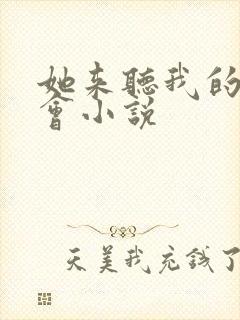 她来聽我的
會小说
天美我充錢了